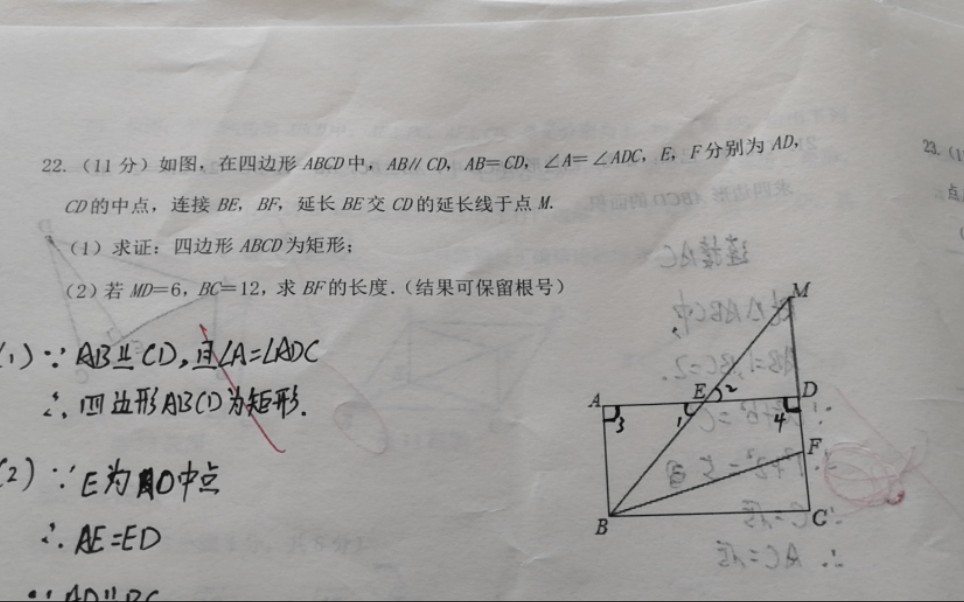 22.(11分)如图，在四边形ABCD中，AB∥CD，AB=CD，∠A=∠ADC，E，F分别为AD，
CD的中点，连接BE，BF，延长BE交CD的延长线于点M.
(1)求证：四边形ABCD为矩形；
(2)若MD=6，BC=12，求BF的长度.(结果可保留根号)
23.
点
(1)∵AB∥CD,且∠A=∠ADC
∴四边形ABCD为矩形.
(2)∵E为AD中点
∴AE=ED
∵AD∥BC
M
A E 2 D
3 1 4
F
B C